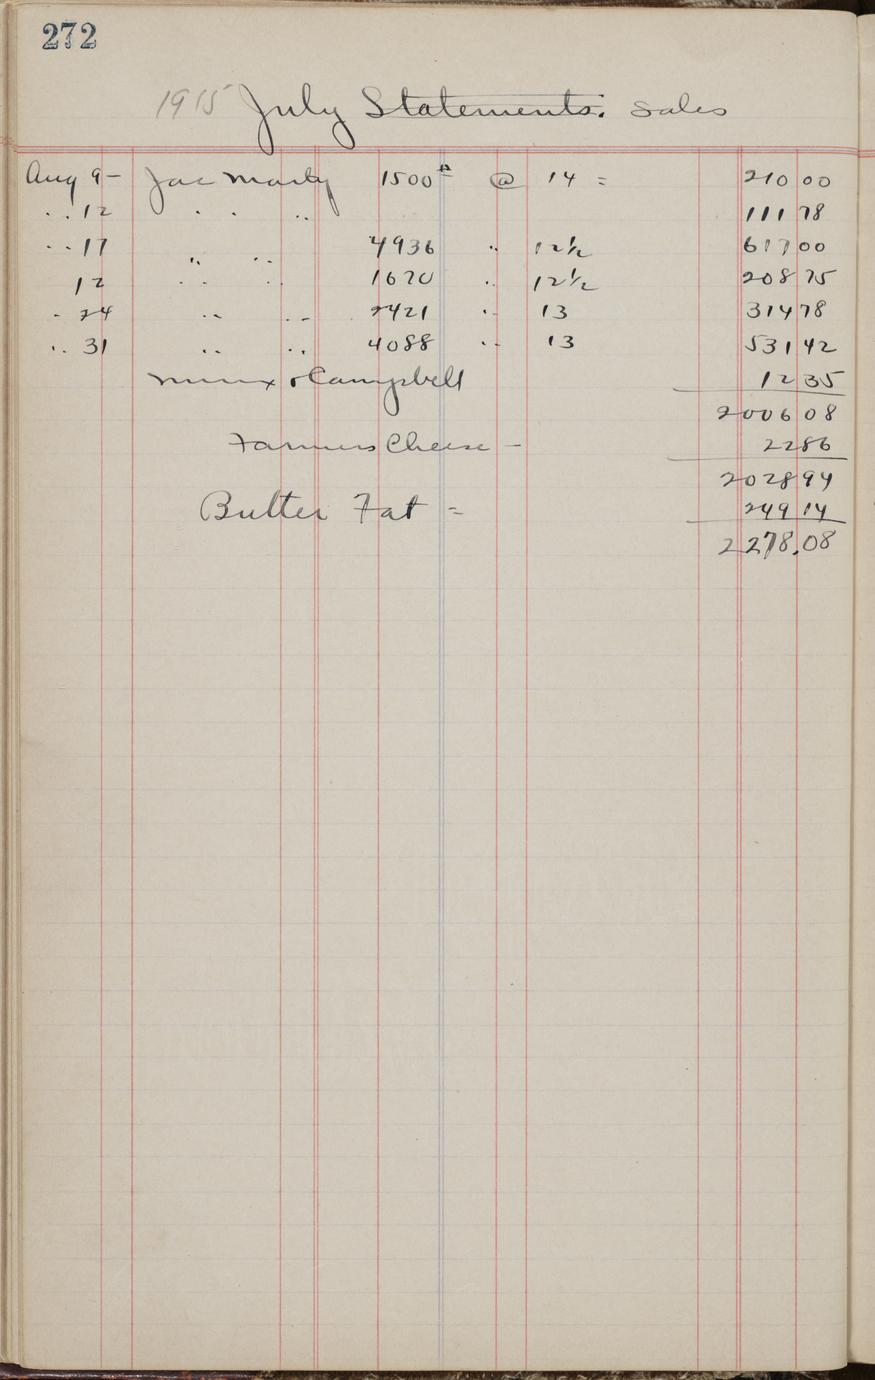 272
1915 July Statements: sales
Aug 9- Jac Marty 1500# @ 14 = 210 00
.. 12 .. .. 111 78
.. 17 .. .. 4936 .. 12½ 617 00
12 .. .. 1670 .. 12½ 208 75
.. 24 .. .. 2421 .. 13 314 78
.. 31 .. .. 4088 .. 13 531 42
& Campbell 12 35
2006 08
Farmers Cheese - 22 86
2028 94
Butter Fat = 249 14
2278.08